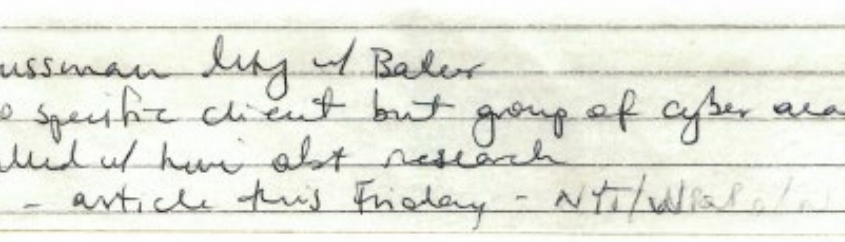 ussman Mtg w/ Baker
o specific client but group of cyber aca
lked w/ him abt research
- article this Friday - NYT/WSJ